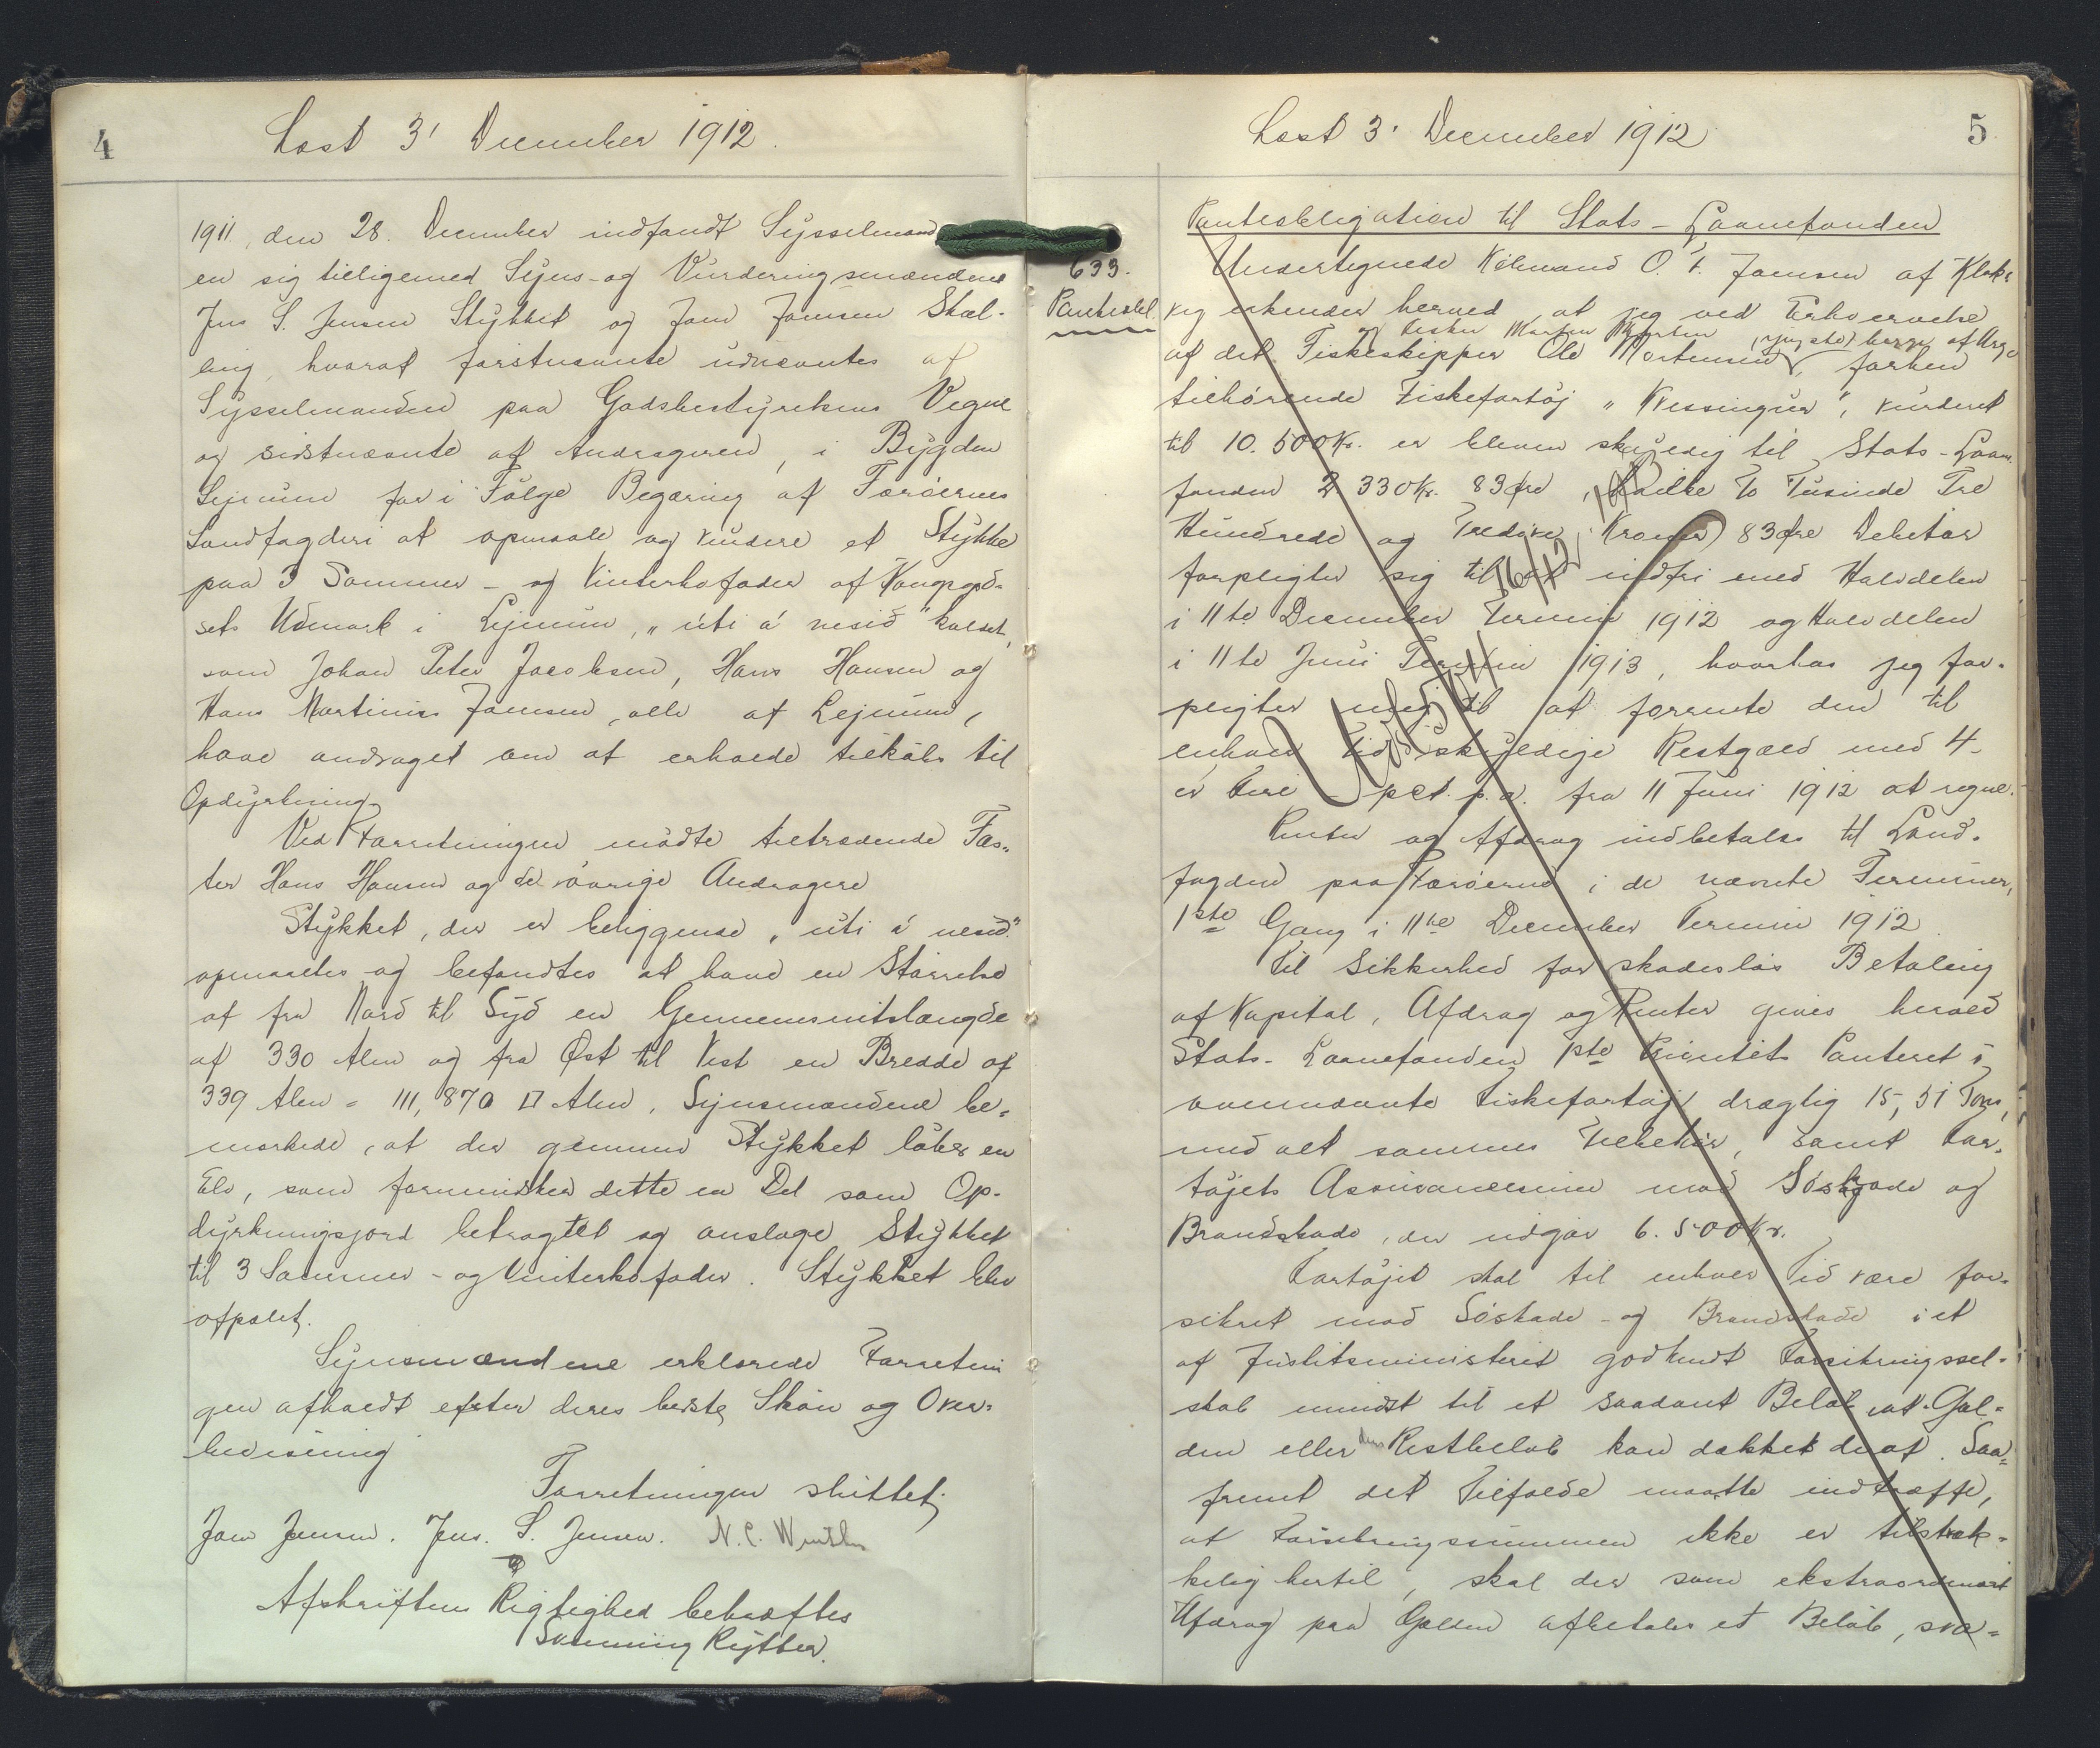 4
Læst 3' December 1912.
1911, den 28. December indfandt Sysselmand
en sig tilligemed Syns- og Vurderingsmændene
Jens S. Jensen Stykket og Joen Joensen Skæl-
ling, hvoraf førstnævnte udnævntes af
Sysselmanden paa Godsbestyrelsens Vegne
og sidstnævnte af Andrageren, i Bygden
Lejnum for i Følge Begæring af Færøernes
Landfogderi at opmaale og vurdere et Stykke
paa 3 Sommer- og Vinterkofoder af Kongsgod-
sets Udmark i Lejnum, "úti á nesið" kaldet,
som Johan Peter Jacobsen, Hans Hansen og
Hans Martinus Joensen, alle af Lejnum,
have andraget om at erholde tilkøbs til
Opdyrkning.
Ved Forretningen mødte tiltrædende Fæs-
ter Hans Hansen og de øvrige Andragere
Stykket, der er beliggende "úti á nesið"
opmaaltes og befandtes at have en Størrelse
af fra Nord til Syd en Gennemsnitslængde
af 330 Alen og fra Øst til Vest en Bredde af
339 Alen = 111,870 □ Alen. Synsmændene be-
mærkede, at der gennem Stykket løber en
Elv, som formindsker dette en Del som Op-
dyrkningsjord betragtet og anslage Stykket
til 3 Sommer- og Vinterkofoder. Stykket blev
afpælet.
Synsmændene erklærede Forretnin
gen afholdt efter deres bedste Skøn og Over-
bevisning
Forretningen sluttet.
Joen Jensen. Jens. S. Jensen. N. C. Winther
Afskriftens Rigtighed bekræftes
Svenning Rytter.
5
Læst 3' December 1912
633.
Panteobl.
Panteobligation til Stats-Laanefonden
Undertegnede Købmand O. F. Joensen af Klaks
vig erkender herved at jeg ved Erhvervelse
af det Fiskeskipper Ole Mortensen, forhen
tilhørende Fiskefartøj "Kessinguer", vurderet
til 10.500 Kr. er bleven skyldig til Stats-Laane
fonden 2 330 Kr. 83 Øre, hvilke To Tusinde Tre
Hundrede og Tredive Kroner 83 Øre Debitor
forpligter sig til at indfri med Halvdelen
i 11te December Termin 1912 og Halvdelen
i 11te Juni Termin 1913, hvorhos jeg for-
pligter mig til at forrente den til
enhver Tid skyldige Restgæld med 4-
er Fire - pct. p.a. fra 11 Juni 1912 at regne.
Renter og Afdrag indbetales til Land-
fogden paa Færøerne i de nævnte Terminer,
1ste Gang i 11te December Termin 1912
Til Sikkerhed for skadesløs Betaling
af Kapital, Afdrag og Renter gives herved
Stats-Laanefonden 1ste Prioritets Panteret i
ovennævnte Fiskefartøj drægtig 15,51 Tons,
med alt sammes Tilbehør, samt Far-
tøjets Assurancesum mod Søskade og
Brandskade, der udgør 6.500 Kr.
Fartøjet skal til enhver Tid være for-
sikret mod Søskade- og Brandskade i et
af Justitsministeriet godkendt Forsikringssel-
skab mindst til et saadant Beløb, at Gæl-
den eller dens Restbeløb kan dækkes deraf. Saa-
fremt det Tilfælde maatte indtræffe,
at Forsikringssummen ikke er tilstræk-
kelig hertil, skal der som ekstraordinært
Afdrag paa Gælden afbetales et Beløb, sva-